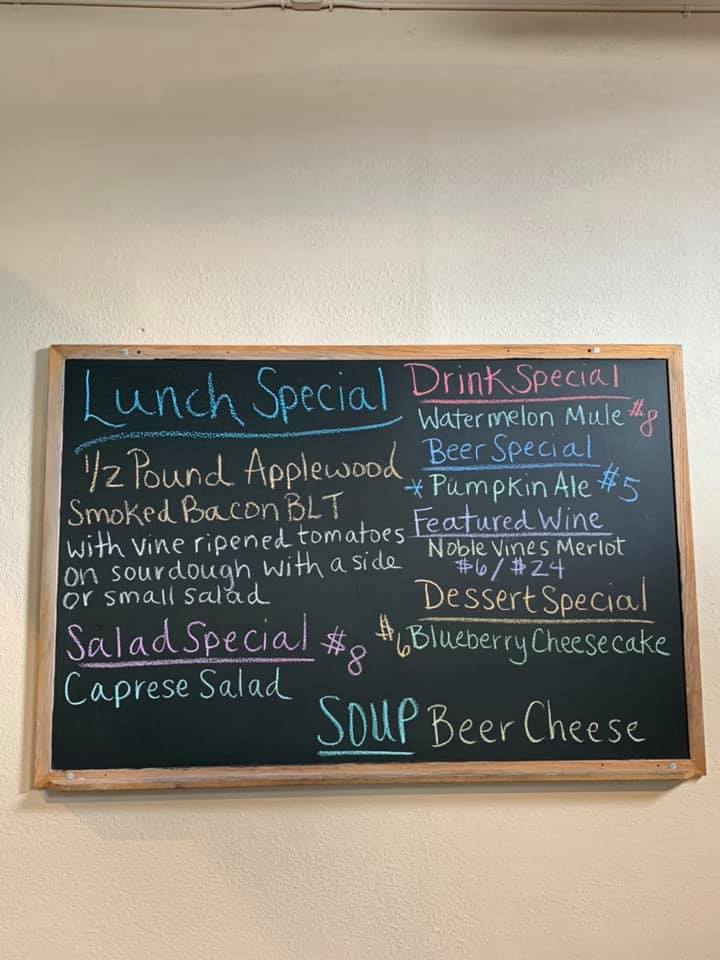 Lunch Special
1/2 Pound Applewood
Smoked Bacon BLT
with vine ripened tomatoes
on sourdough with a side
or small salad
Salad Special $8
Caprese Salad
Drink Special
Watermelon Mule $8
Beer Special
* Pumpkin Ale $5
Featured Wine
Noble Vines Merlot
$6/$24
Dessert Special
$6 Blueberry Cheesecake
SOUP Beer Cheese